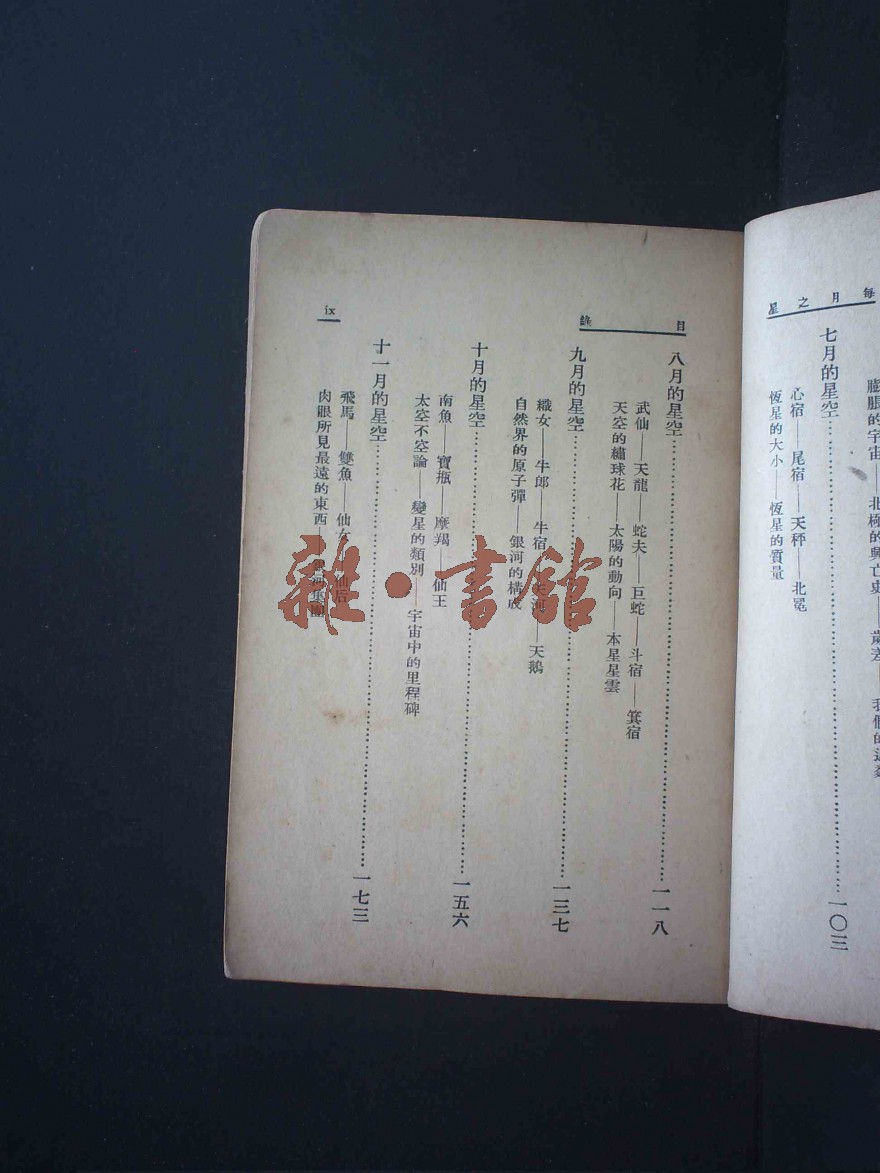 每月之星
膨脹的宇宙——北極的興亡史——歲差——我們的
七月的星空……一〇三
心宿——尾宿——天秤——北冕
恆星的大小——恆星的質量
目錄
八月的星空……一一八
武仙——天龍——蛇夫——巨蛇——斗宿——箕宿
天空的繡球花——太陽的動向——本星星雲
九月的星空……一三七
織女——牛郎——牛宿——天鵝
自然界的原子彈——銀河的構成
十月的星空……一五六
南魚——寶瓶——摩羯——仙王
太空不空論——變星的類別——宇宙中的里程碑
十一月的星空……一七三
飛馬——雙魚——仙女——仙后
肉眼所見最遠的東西——河集團
ix
雜·書館